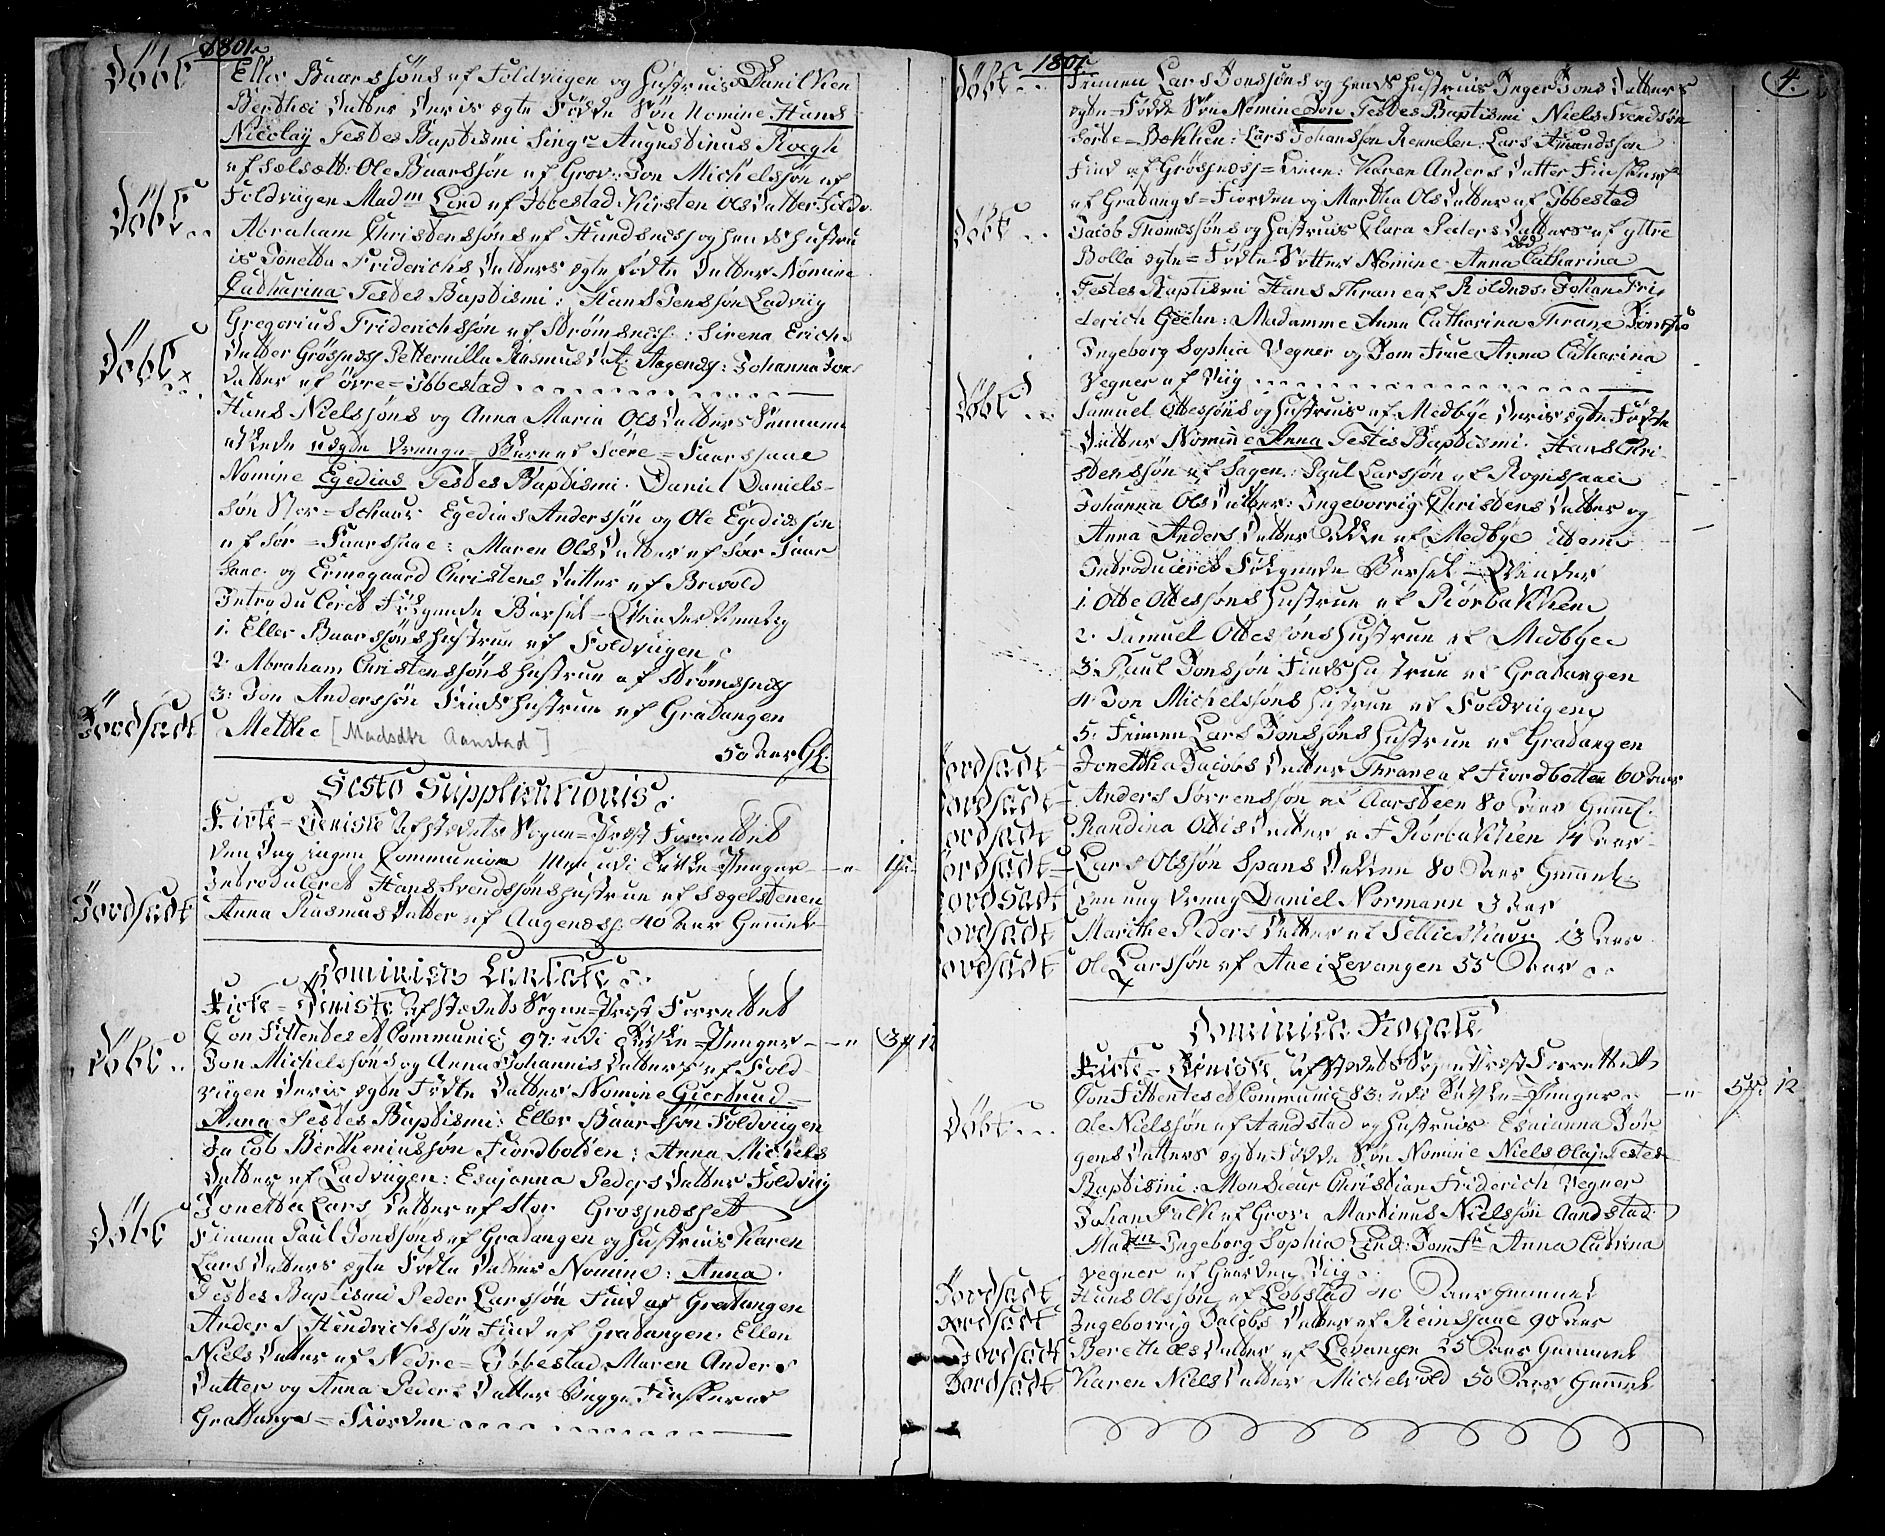 1801
Döbt Eller Baarssöns af Foldviigen og Hustruis Daniliken
Berthei Datter Deris egte Födde Sön Nomine Hans
Nicolaÿ Testes Baptismi Singr Augustinus Roegh
af Sælsætt: Ole Baarssön af Grov: Jon Michelssön af
Foldviigen Madm Lind af Ibbestad Kirsten Ols Datter Foldv.
Döbt Abraham Christenssöns af Hundsness og hends Hustru
is Jonetta Friderichs Datters egte födte Datter Nomine
Catharina Testes Baptismi: Hans Jenssön Ladviig
Gregorius Friderichssön af Strömsness: Sirena Erichs
Datter Grössness Petternilla Rasmus Dat. Aagenes: Johanna Jons
Datter af övre=Ibbestad
Döbt Hans Nielssöns og Anna Maria Ols Datters Sammen
aflede uegte Drenge=Barn af Söere=Faarsaae
Nomine Egedius Testes Baptismi. Daniel Daniels-
sön Stor=Schaur Egedius Anderssön og Ole Egedissön
af Sör=Faarsaae: Maren Ols Datter af Sör Faar
Saae og Ermegaard Christens Datter af Brevold
Introduceret Fölgende Barsel=Qvinder
1. Eller Baarssöns Hustrue af Foldviigen
2. Abraham Christenssöns Hustrue af Strömsness
3: Jon Anderssön Finds Hustrue af Gratangen
Jordsadt Methe [Madsdtr Aanstad]
50 Aar Gl.
Festo Supplicationis
Kirke=Tieniste af Stedets Sogne=Præst Forrettet
den Dag ingen Communion udi Kirke=Penger
Introduceret Hans Svendssöns Hustrue af Sægelstenen
Jordsadt Anna Rasmus Datter af Aagenæss: 40 Aar Gammel
Dominica Cantate
Kirke=Tieniste af Stedets Sogne=Præst Forrettet
Confittendes et Communic: 97: udi Kirke=Penger 3 12
Döbt Jon Michelssöns og Anna Johannis Datters af Fold
viigen Deris egte Födte Datter Nomine Giertrud
Anna Testes Baptismi: Eller Baarssön Foldviigen
Jacob Bertheniussön Fiordbotten: Anna Michels
Datter af Ladviigen: Esajanna Peders Datter Foldviig
Jonetta Lars Datter af Stor Grosnæsset
Döbt Finmn Paul Jonssöns af Gratangen og Hustruis Karen
Lars Datters egte Födte Datter Nomine: Anna.
Testes Baptismi Peder Larssön Find af Gratangen
Anders Hendrichssön Find af Gratangen: Ellen
Niels Datter af Nedre=Ibbestad Maren Anders
Datter og Anna Peders Datter Begge Finskerner
Grattangs=Fiorden
1801 4.
Döbt Finmn Lars Jonssöns og hends Hustruis Inger Jons Datters
egte=Födde Sön Nomine Jon Testes Baptismi Niels Svendsön
Lars Johanssön Rennelen: Lars Amundssön
Find af Grössness=Karen Anders Datter Finskenf
af Gratangs=Fiorden og Martha Ols Datter af Ibbestad
Döbt Jacob Thomæssöns og Hustruis Clara Peders Datters af yttre
Bolla egte=Födte Datter Nomine Anna Catharina
Testes Baptismi Hans Thrane af Roldnes: Johan Fri
derich Geehn: Madamme Anna Catharina Thrane Jomfru
Ingeborg Sophia Vegner og Jom Frue Anna Catharina
Vegner af Viig
Döbt Samuel Ottessöns og Hustruis af Medbye Deris egte Födte
Datter Nomine Anna Testis Baptismi. Hans Chri-
stenssön af Hagen: Paul Larssön af Rognsaae
Johanna Ols Datter: Ingeborrig Christens Datter og
Anna Anders Datter af Medbye
Introduceret Fölgende Barsel=Qvinder
1. Otte Ottessöns Hustrue af Rörbakken
2. Samuel Ottessöns Hustrue af Medbye
3. Paul Jonssön Finds Hustrue af Gratangen
4. Jon Michelssöns Hustrue af Foldviigen
5. Finmn Lars Jonssöns Hustrue af Gratangen
Jordsadt Jonettha Jacobs Datter Thrane af Fiordbotten 60 Aar
Jordsadt Anders Sörrenssön af Aarsteen 80 Aar Gaml.
Jordsadt Randina Ottis Datter af Rörbakken 14 Aar
Jordsadt Lars Olssön Spans Dallen 80 Aar Gamml.
Jordsadt Den ung Dreng Daniel Normann 3 Aar
Jordsadt Marithe Peders Datter af Sellieskiær 13 Aar
Jordsadt Ole Larssön af Aae i Levangen 55 Aar
Dominica Rogate
Kirke=Tieniste af Stedets Sogne Præst Forrettet
Confittentes et Communic: 83: udi Kirke=Penger 5 12
Döbt Ole Nielssön af Aandstad og Hustruis Esaianna Jör
gens Datters egte Födde Sön Nomine Niels Olaj: Testes
Baptismi: Monsieur Christian Friderich Vegner
Johan Falk af Grov: Martinus Nielssön Aandstad
Madm Ingeborg Sophia Lind: Jomfr Anna Catrina
Vegner af Gaarden Viig
Jordsadt Hans Olssön af Lobstad 40 Aar Gammel
Jordsadt Ingeborrig Jacobs Datter af Reinsaae 90 Aar
Jordsadt Bereth Ols Datter af Levange 25 Aar Gammel
Jordsadt Karen Niels Datter Michelvold 50 Aar Gammel